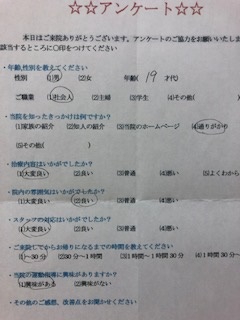 ☆☆アンケート☆☆
本日はご来院ありがとうございます。アンケートのご協力をお願いいたしま
該当するところに○印をつけてください
・年齢,性別を教えてください
性別 (1)男 (2)女 年齢( 19 才代)
ご職業 (1)社会人 (2)主婦 (3)学生 (4)その他(
・当院を知ったきっかけは何ですか?
(1)家族の紹介 (2)知人の紹介 (3)当院のホームページ (4)通りがかり
(5)その他( )
・治療内容はいかがでしたか?
(1)大変良い (2)良い (3)普通 (4)悪い (5)よくわから
・院内の雰囲気はいかがでしたか?
(1)大変良い (2)良い (3)普通 (4)悪い
・スタッフの対応はいかがでしたか?
(1)大変良い (2)良い (3)普通 (4)悪い
・ご来院してからお帰りになるまでの時間を教えてください
(1)～30分 (2)30分～1時間 (3)1時間～1時間30分 (4)1時間30
・当院の運動指導に興味がありますか?
(1)興味がある (2)興味がない
・その他のご感想、改善点をお聞かせください